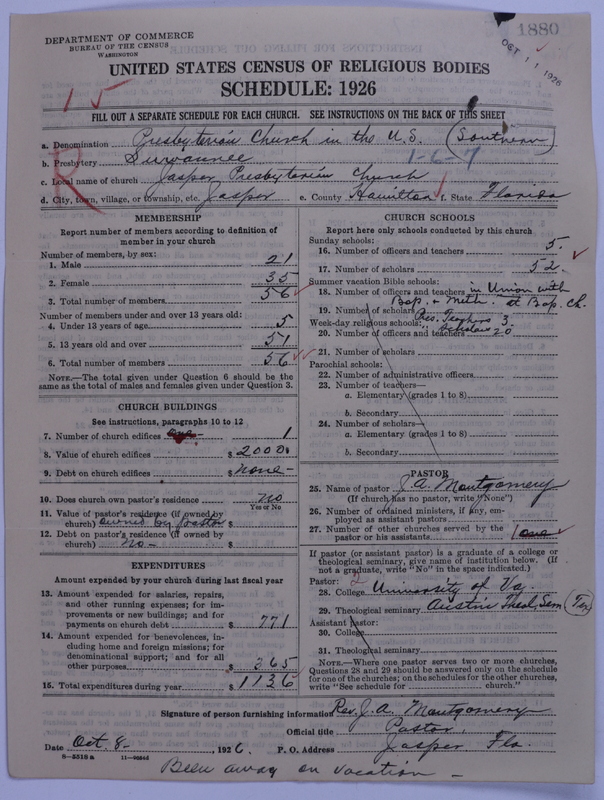 1880
OCT 11 1926
DEPARTMENT OF COMMERCE
BUREAU OF THE CENSUS
WASHINGTON
UNITED STATES CENSUS OF RELIGIOUS BODIES
SCHEDULE: 1926
15
FILL OUT A SEPARATE SCHEDULE FOR EACH CHURCH. SEE INSTRUCTIONS ON THE BACK OF THIS SHEET
R
a. Denomination Presbyterian Church in the U.S. (Southern)
b. Presbytery Suwannee 1-6-7
c. Local name of church Jasper Presbyterian Church
d. City, town, village, or township, etc. Jasper e. County Hamilton f. State Florida
MEMBERSHIP
Report number of members according to definition of
member in your church
Number of members, by sex:
1. Male 21
2. Female 35
3. Total number of members 56
Number of members under and over 13 years old:
4. Under 13 years of age 5
5. 13 years old and over 51
6. Total number of members 56
NOTE.—The total given under Question 6 should be the
same as the total of males and females given under Question 3.
CHURCH BUILDINGS
See instructions, paragraphs 10 to 12
7. Number of church edifices one 1
8. Value of church edifices $ 2000
9. Debt on church edifices $ none-
10. Does church own pastor's residence no
Yes or No
11. Value of pastor's residence (if owned by
church) owned by pastor $
12. Debt on pastor's residence (if owned by
church) no- $
EXPENDITURES
Amount expended by your church during last fiscal year
13. Amount expended for salaries, repairs,
and other running expenses; for im-
provements or new buildings; and for
payments on church debt $ 771
14. Amount expended for benevolences, in-
cluding home and foreign missions; for
denominational support; and for all
other purposes $ 265
15. Total expenditures during year $ 1136
CHURCH SCHOOLS
Report here only schools conducted by this church
Sunday schools:
16. Number of officers and teachers 5.
17. Number of scholars 52.
Summer vacation Bible schools:
18. Number of officers and teachers in Union with
Bap. & Meth. at Bap. Ch.
19. Number of scholars Pres. Teachers 3.
Week-day religious schools: " Scholars 20
20. Number of officers and teachers
21. Number of scholars
Parochial schools:
22. Number of administrative officers
23. Number of teachers—
a. Elementary (grades 1 to 8)
b. Secondary
24. Number of scholars—
a. Elementary (grades 1 to 8)
b. Secondary
PASTOR
25. Name of pastor J.A. Montgomery
(If church has no pastor, write "None")
26. Number of ordained ministers, if any, em-
ployed as assistant pastors
27. Number of other churches served by the
pastor or his assistants 1 one
If pastor (or assistant pastor) is a graduate of a college or
theological seminary, give name of institution below. (If
not a graduate, write "No" in the space indicated.)
Pastor: 2
28. College University of Va.
29. Theological seminary Austin Theol. Sem (Tex)
Assistant pastor:
30. College
31. Theological seminary
NOTE.—Where one pastor serves two or more churches,
Questions 28 and 29 should be answered only on the schedule
for one of the churches; on the schedules for the other churches,
write "See schedule for church."
Signature of person furnishing information Rev. J.A. Montgomery
Official title Pastor,
Date Oct. 8-, 1926. P. O. Address Jasper Fla.
8—5518 a
Been away on vacation -